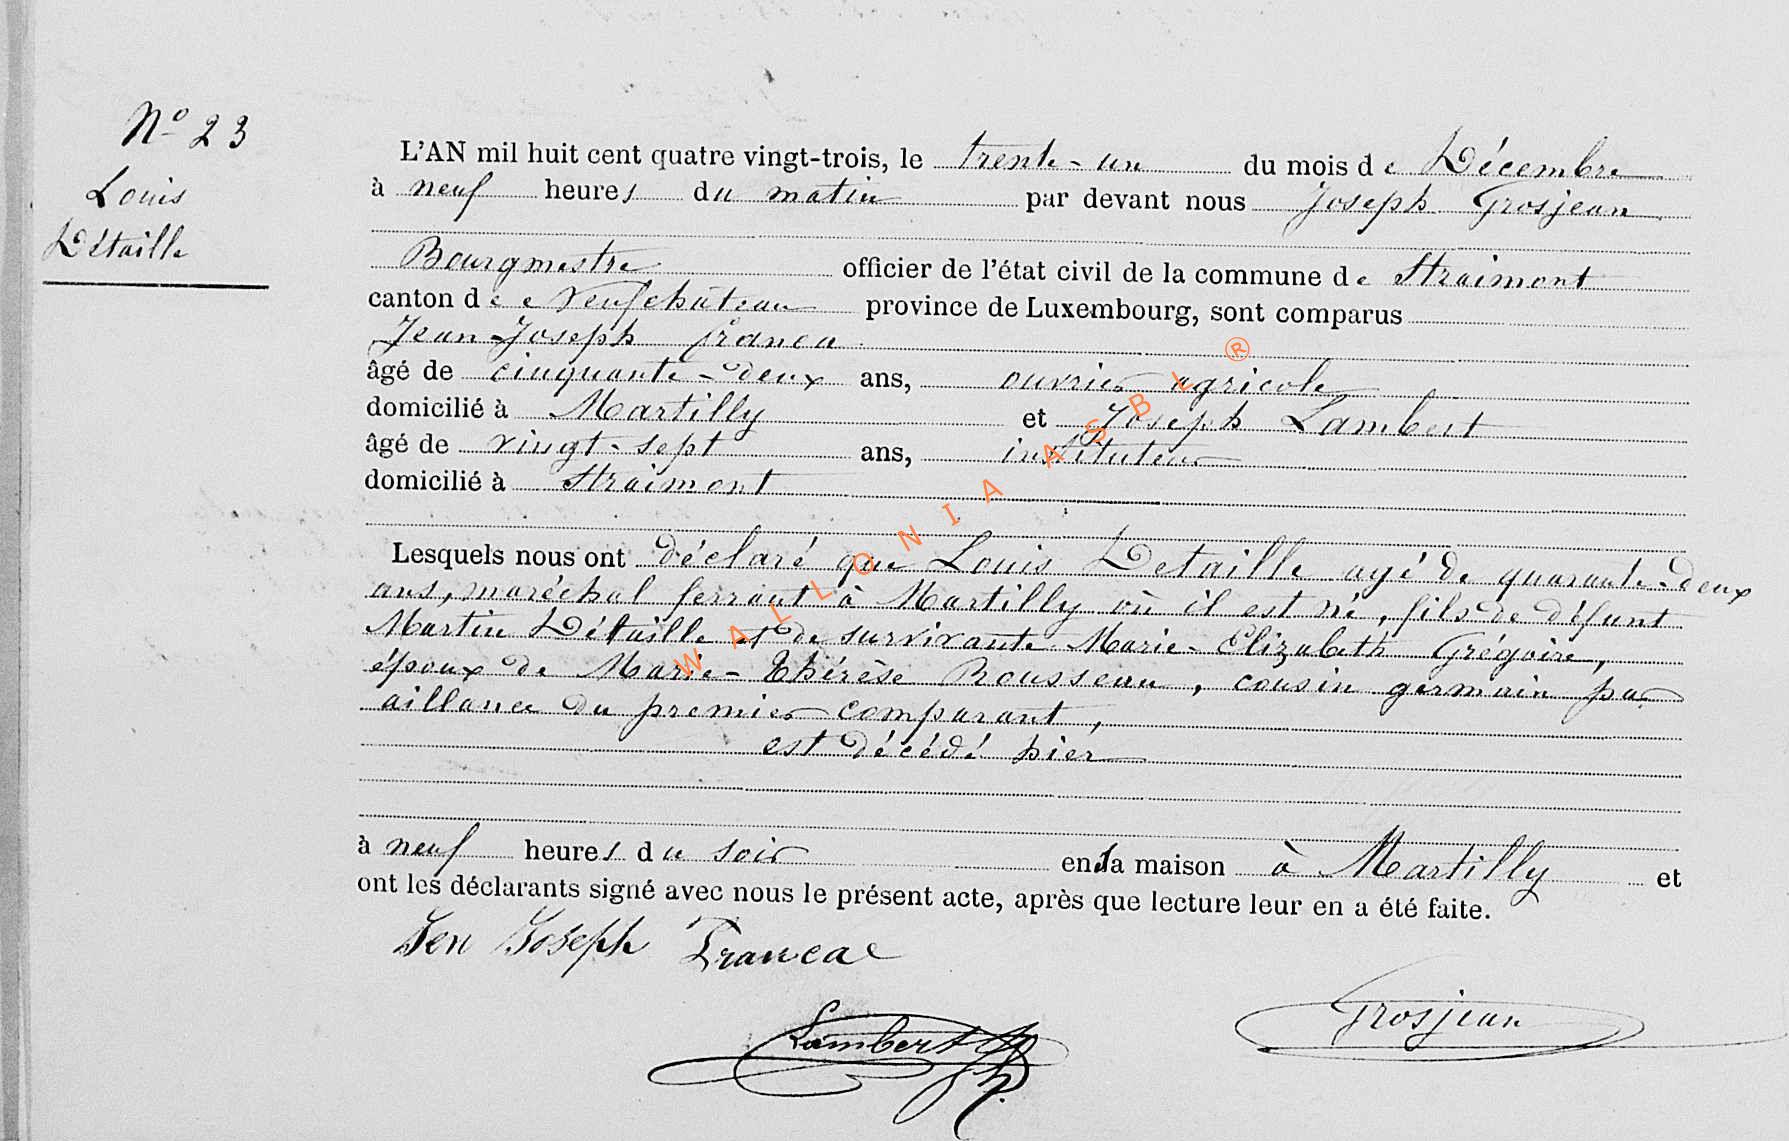 Nº 23
Louis
Détaille
L'AN mil huit cent quatre vingt-trois, le trente-un du mois de Décembre
à neuf heures du matin par devant nous Joseph Grosjean
Bourgmestre officier de l'état civil de la commune de Straimont
canton de Neufchâteau province de Luxembourg, sont comparus
Jean-Joseph Franca
âgé de cinquante-deux ans, ouvrier agricole
domicilié à Martilly et Joseph Lambert
âgé de vingt-sept ans, instituteur
domicilié à Straimont
Lesquels nous ont déclaré que Louis Detaille agé de quarante-deux
ans, maréchal ferrant à Martilly où il est né, fils de défunt
Martin Détaille et de survivante Marie-Elizabeth Grégoire,
époux de Marie-Thérèse Rousseau, cousin germain par
aillance du premier comparant,
est décédé hier
à neuf heures du soir en la maison à Martilly et
ont les déclarants signé avec nous le présent acte, après que lecture leur en a été faite.
Jen Joseph Francae
Lambert Jh.
Grosjean
WALLONIA ASBL ®